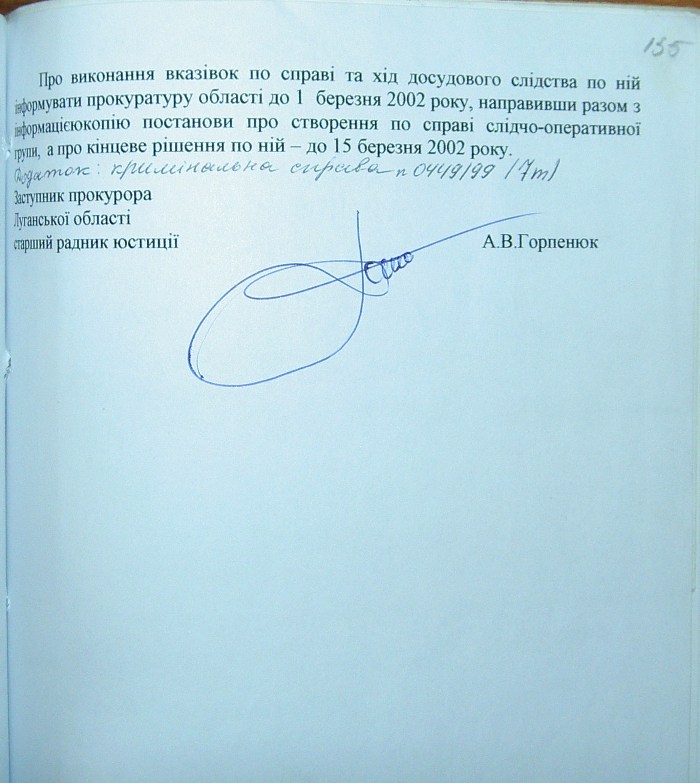 135
Про виконання вказівок по справі та хід досудового слідства по ній
інформувати прокуратуру області до 1 березня 2002 року, направивши разом з
інформацієюкопію постанови про створення по справі слідчо-оперативної
групи, а про кінцеве рішення по ній – до 15 березня 2002 року.
Додаток: кримінальна справа п 0449/99 (7т)
Заступник прокурора
Луганської області
старший радник юстиції А.В.Горпенюк